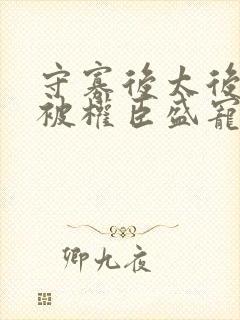 守寡後太後
被權臣盛寵
卿九夜